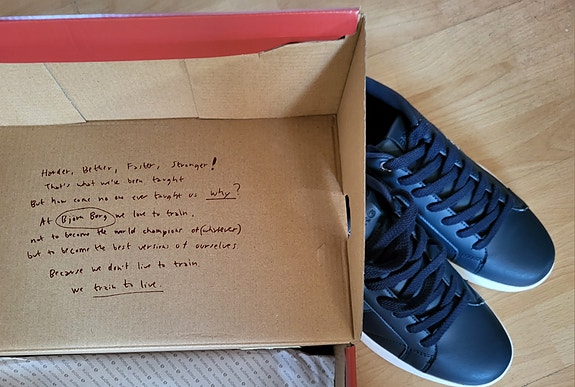 Harder, Better, Faster, Stronger!
That's what we've been taught
But how come no one ever taught us why?
At Björn Borg we love to train,
not to become the world champions of (whatever)
but to become the best versions of ourselves.
Because we don't live to train
we train to live.